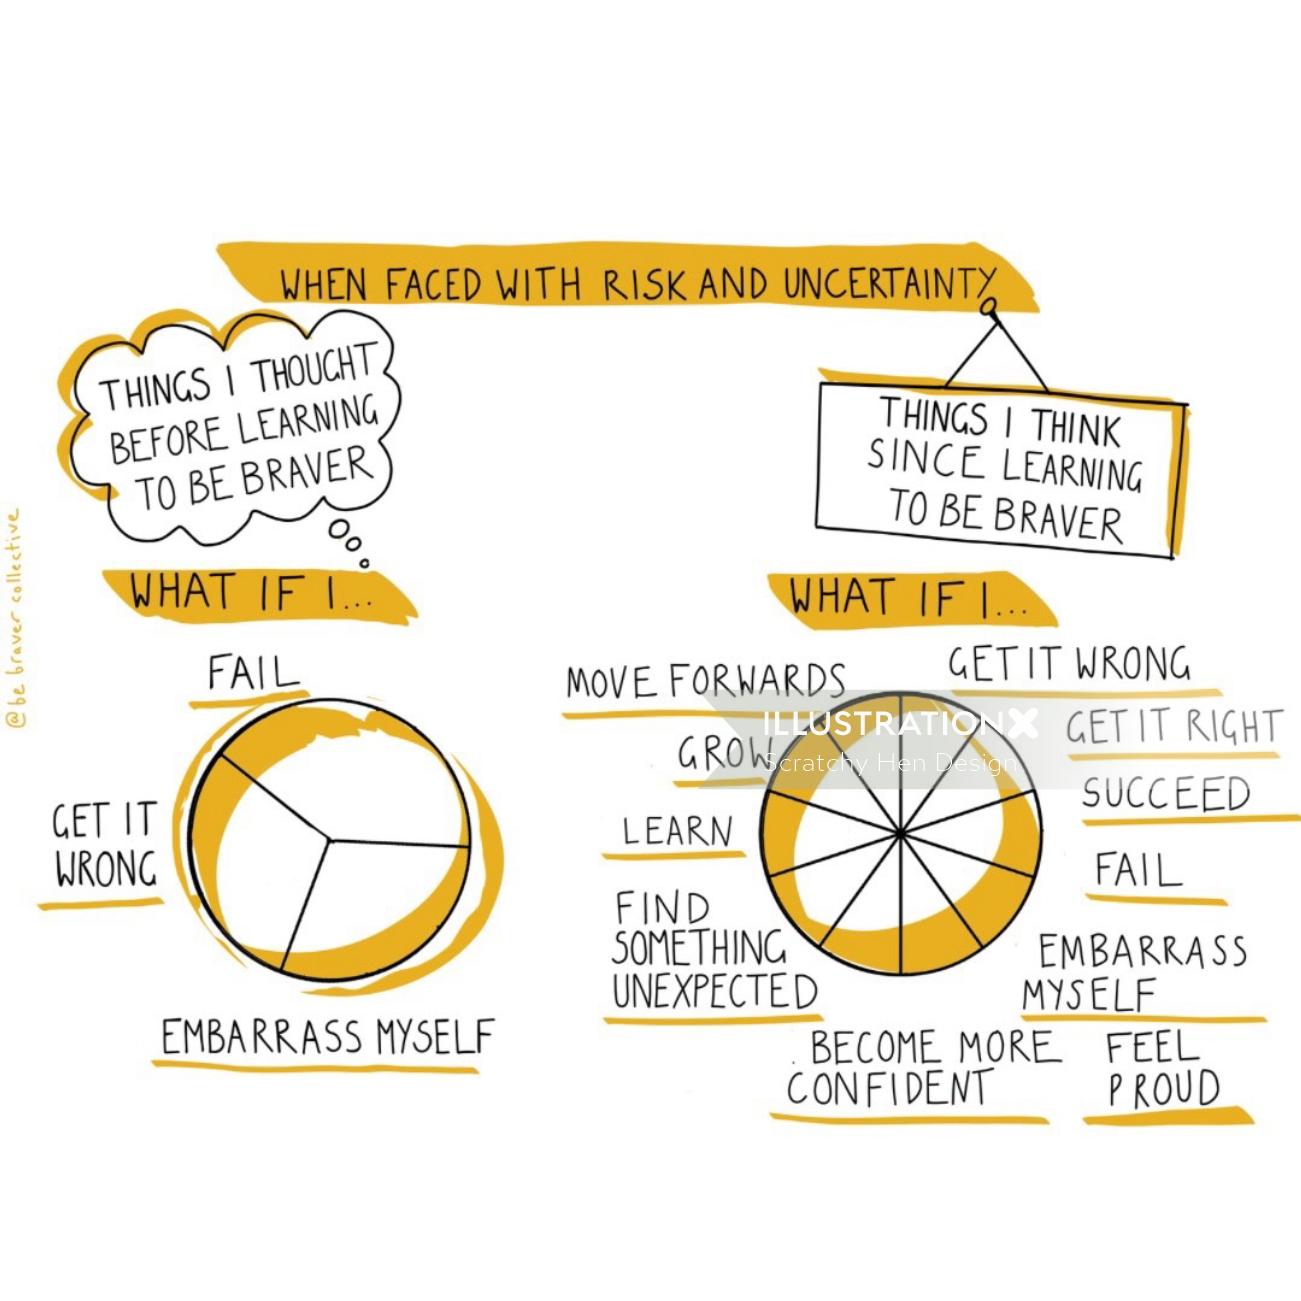 WHEN FACED WITH RISK AND UNCERTAINTY
THINGS I THOUGHT
BEFORE LEARNING
TO BE BRAVER
WHAT IF I...
FAIL
GET IT
WRONG
EMBARRASS MYSELF
THINGS I THINK
SINCE LEARNING
TO BE BRAVER
WHAT IF I...
MOVE FORWARDS
GROW
LEARN
FIND
SOMETHING
UNEXPECTED
BECOME MORE
CONFIDENT
GET IT WRONG
GET IT RIGHT
SUCCEED
FAIL
EMBARRASS
MYSELF
FEEL
PROUD
ILLUSTRATIONX
Scratchy Hen Design
@be braver collective